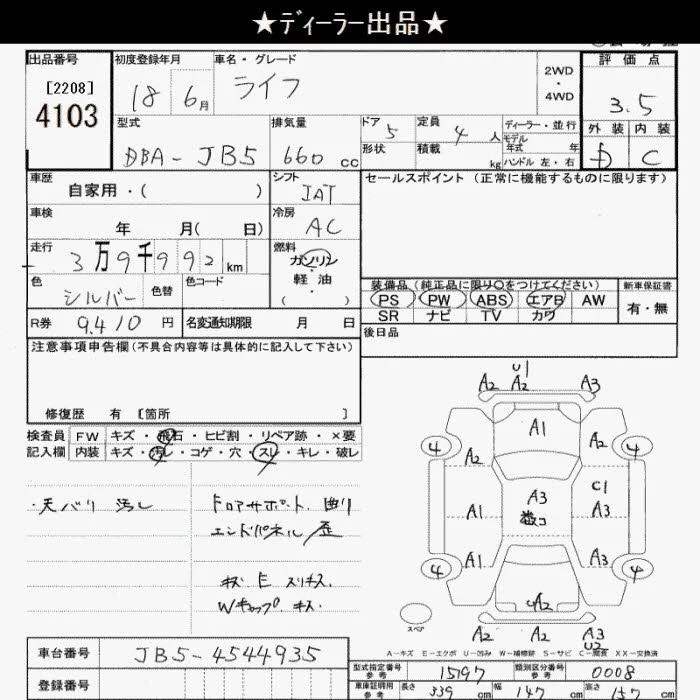 ★ディーラー出品★
出品番号 初度登録年月 車名・グレード 2WD・4WD 評価点
[2208] 18 6月 ライフ 3.5
4103
型式 排気量 ドア 5 定員 4人 ディーラー・並行 外装 内装
DBA-JB5 660cc 形状 積載 kg モデル年式 年 D C
ハンドル 左・右
車歴 シフト セールスポイント (正常に機能するものに限ります)
自家用・( ) IAT
車検 冷房
年 月( 日) AC
走行 燃料
3万9千992km ガソリン・軽油・( )
色 色替 色コード 装備品(純正品に限り○をつけてください) 新車保証書
シルバー PS PW ABS エアB AW 有・無
SR ナビ TV カワ
R券 9,410円 名変通知期限 月 日 後日品
注意事項申告欄(不具合内容等は具体的に記入して下さい)
修復歴 有 [箇所 ]
検査員 FW キズ・飛石・ヒビ割・リペア跡・×要
記入欄 内装 キズ・汚レ・コゲ・穴・スレ・キレ・破レ
・天バリ 汚レ ドロアサポート 曲り
エンドパネル 歪
キズ E スリキズ
Wキャップ キズ
U1
A2 A2 A3
A1
A2
4
4
A2
C1
A3
A3
A1
A1
A3
4
4
A2
スペア
A2 A2 A3
U2
A-キズ E-エクボ U-凹み W-補修跡 S-サビ C-腐食 XX-交換済
車台番号 JB5-4544935
登録番号
型式指定番号 参考 15197 類別区分番号 参考 0008
車庫証明用 参考 長さ 339cm 幅 147cm 高さ 157cm